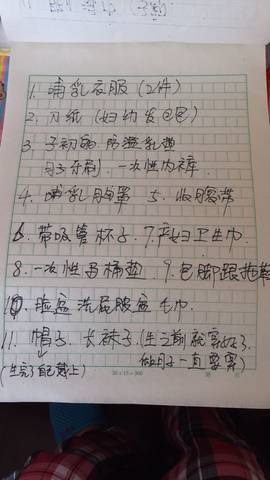 1. 哺乳衣服 (2件)
2. 刀纸 (妇幼发包)
3 子初的 防溢乳垫
月子牙刷、一次性内裤
4. 哺乳胸罩 5. 收腹带
6. 带吸管杯子、7. 产妇卫生巾
8. 一次性马桶垫 9. 包脚跟拖鞋
10. 脸盆 洗屁股盆 毛巾
11. 帽子、长袜子 (生之前就穿好了
(生完了自己戴上) 做月子一直要穿)
20×15=300